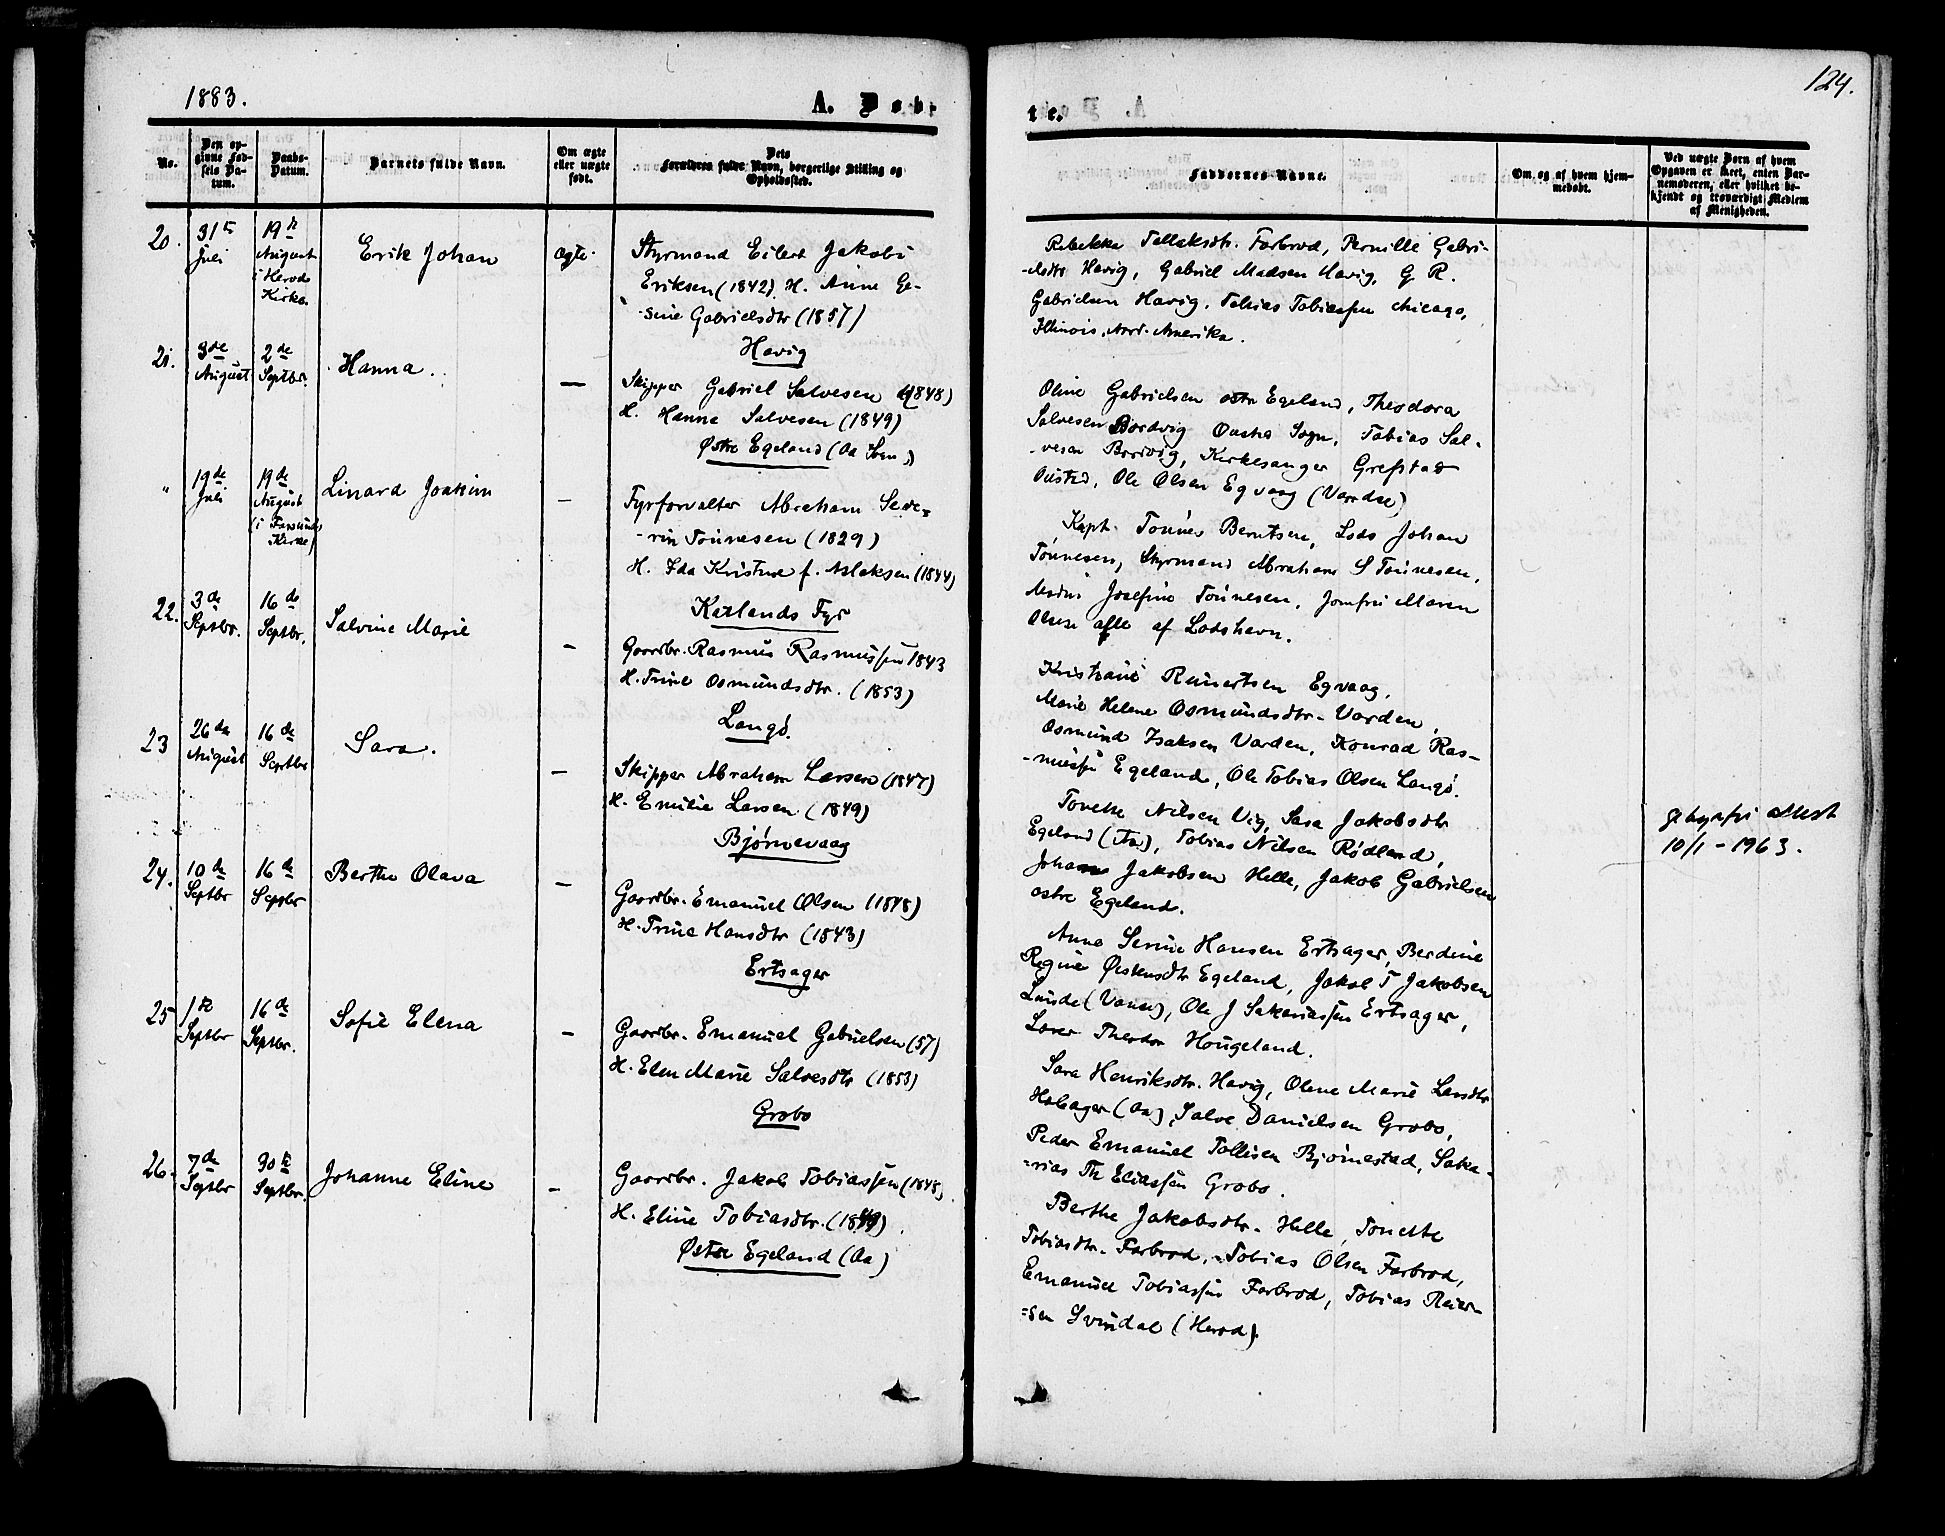 1883.
A. Døb-
No.
Den op-
givne Fød-
sels Da-
tum.
Daabs-
Datum.
Barnets fulde Navn.
Om ægte
eller uægte
født.
Dets
Forældres fulde Navn, borgerlige Stilling og
Opholdssted.
20.
31te
Juli
19de
August
i Herods
Kirke.
Erik Johan
Ægte.
Styrmand Eilert Jakobi
Eriksen (1842). H. Anne Ge-
sine Gabrielsdtr (1857)
Havig
21.
3de
August
2de
Septbr.
Hanna.
—
Skipper Gabriel Salvesen (1848)
H. Hanne Salvesen (1849)
Østre Egeland (Aa Sogn)
"
19de
Juli
19de
August
(i Farsunds
Kirke)
Linard Joakim
—
Fyrforvalter Abraham Seve-
-rin Tønnesen (1829)
H. Ida Kristine f. Aslaksen (1844)
Katlands Fyr
22.
3de
Septbr.
16de
Septbr.
Salvine Marie
—
Gaardbr. Rasmus Rasmussen 1843
H. Trine Osmundsdtr. (1853)
Langø.
23
26de
August
16de
Septbr
Sara.
—
Skipper Abraham Larsen (1847)
H. Emilie Larsen (1849)
Bjørnevaag
24.
10de
Septbr
16de
Septbr
Berthe Olava
—
Gaardbr. Emanuel Olsen (1848)
H. Trine Hansdtr (1843)
Ertsager
25
1ste
Septbr
16de
Septbr.
Sofie Elena
—
Gaardbr. Emanuel Gabrielsen (57)
H. Elen Marie Salvesdtr (1853)
Grobo
26.
7de
Septbr
30te
Septbr.
Johanne Eline
—
Gaardbr. Jakob Tobiassen (1848)
H. Eline Tobiasdtr. (1849).
Østre Egeland (Aa)
124.
te.
Faddernes Navne.
Om og af hvem hjem-
medøbt.
Ved uægte Børn af hvem
Opgaven er skeet, enten Bar-
nemoderen, eller hvilket be-
kjendt og troværdigt Medlem
af Menigheden.
Rebekka Tellaksdtr. Farbrod, Pernille Gabri-
-elsdtr Havig, Gabriel Madsen Havig, G R.
Gabrielsen Havig, Tobias Tobiassen Chicago,
Illinois, Nord-Amerika.
Oline Gabrielsen østre Egeland, Theodora
Salvesen Bordvig Sogn, Tobias Sal-
-vesen Bordvig, Kirkesanger Grefstad
Ousted, Ole Olsen Egvaag (Vardse)
Kapt. Tønnes Berntsen, Lods Johan
Tønnesen, Styrmand Abraham S Tønnesen,
Josefine Tønnesen, Jomfru Maren
Olsen alle af Lodshavn.
Kristiane Reinertsen Egvaag,
Marie Helene Osmundsdtr. Varden,
Osmund Isaksen Varden, Konrad Ras-
-mussen Egeland, Ole Tobias Olsen Langø.
Tonette Nilsen Vig, Sara Jakobsdtr
Egeland (Aa), Tobias Nilsen Rødland,
Johan Jakobsen Helle, Jakob Gabrielsen
østre Egeland.
gebyrfri Attest
10/1 - 1963.
Anna Serine Hansen Ertsager, Berdine
Regine Egeland, Jakob T Jakobsen
Lunde (Vanse), Ole J Sakariassen Ertsager,
Lærer Theodor Hougeland.
Sara Henriksdtr. Havig, Olene Marie Larsdtr
Habager (Aa), Salve Danielsen Grobo,
Peder Emanuel Tollisen Bjørnestad, Saka-
-rias Th Eliassen Grobo.
Berthe Jakobsdtr. Helle, Tonette
Tobiasdtr. Farbrod, Tobias Olsen Farbrod,
Emanuel Tobiassen Farbrod, Tobias Reier-
-sen Svindal (Herod).